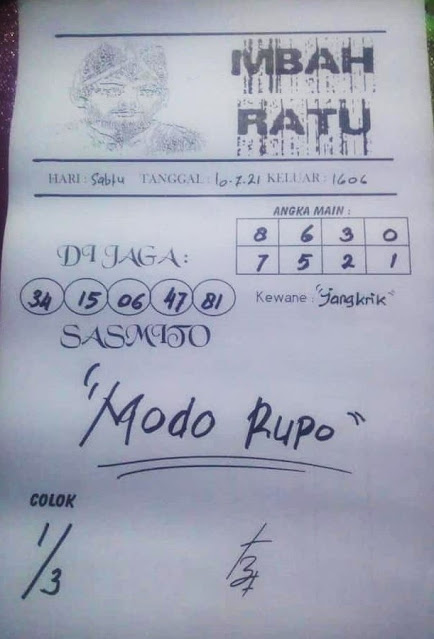 MBAH
RATU
HARI : Sabtu TANGGAL : 10-7-21 KELUAR : 1606
ANGKA MAIN :
8 6 3 0
7 5 2 1
DI JAGA :
34 15 06 47 81
Kewane : "Jangkrik"
SASMITO
"Modo Rupo"
COLOK
1/3